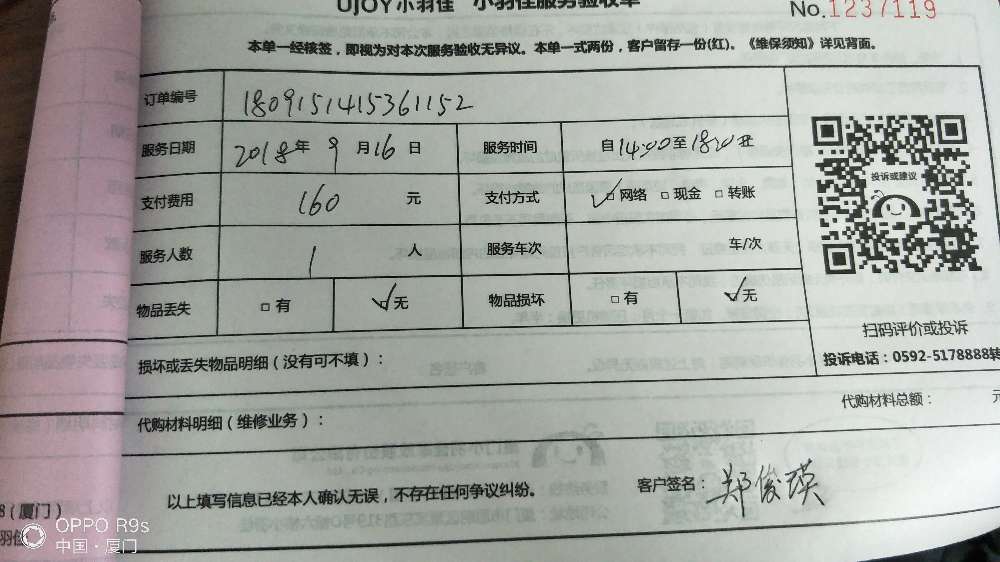 UJOY小羽佳 小羽佳服务验收单
No.1237119
本单一经核签，即视为对本次服务验收无异议。本单一式两份，客户留存一份(红)。《维保须知》详见背面。
订单编号 1809151415361152
服务日期 2018年9月16日 服务时间 自14:00至18:20止
支付费用 160 元 支付方式 ☑网络 □现金 □转账
服务人数 1 人 服务车次 车/次
物品丢失 □有 ☑无 物品损坏 □有 ☑无
投诉或建议
扫码评价或投诉
投诉电话：0592-5178888转
损坏或丢失物品明细（没有可不填）：
代购材料明细（维修业务）：
代购材料总额： 元
以上填写信息已经本人确认无误，不存在任何争议纠纷。
客户签名： 郑俊瑛
8（厦门）
羽佳
OPPO R9s
中国·厦门